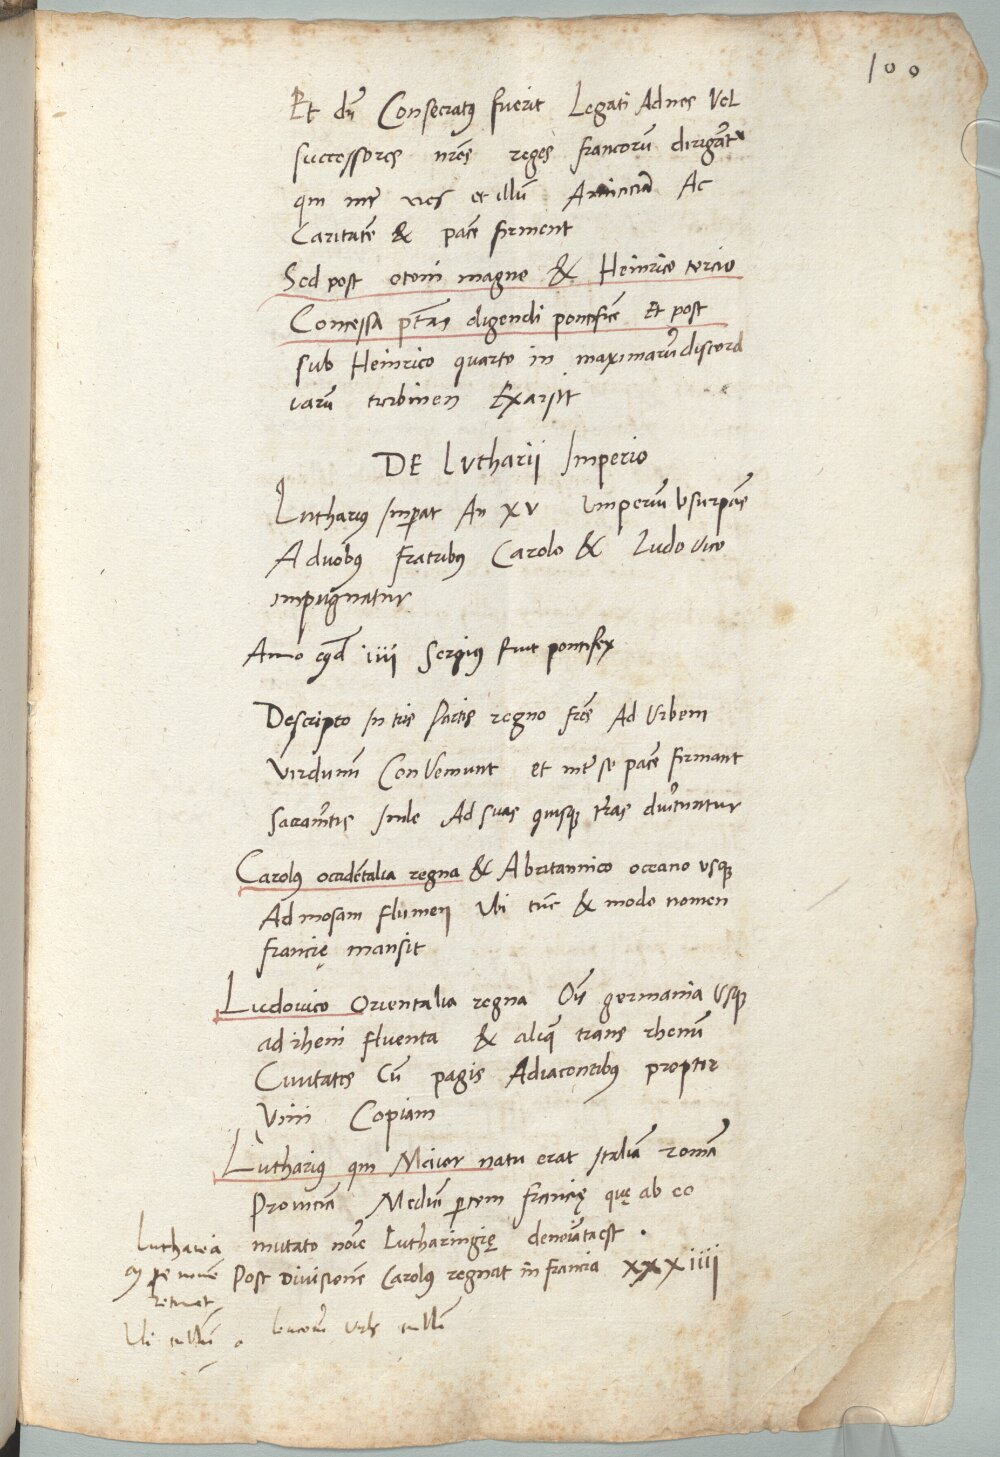 100
Et dū Consecratꝰ fuerit Legati Ad nos Vel
successores nr̄os reges francorū dirigāt~
qui int̄ vos et illū Amiciciā Ac
Caritatē & pacē firment
Sed post otoni magno & Heinrico tercio
Concessa p̄t̄as eligendi pontificē Et post
sub Heinrico quarto in maximarū discord
iarū turbinen Exarsit
DE Lutharii Imperio
Lutharius Imꝑat An XV imperiū Vsurpās
A duobꝰ fratribꝰ Carolo & Ludovico
impugnatur
Anno eiꝰd iiii Sergius fuit pontifex
Descripto In tris Partis regno frēs Ad Urbem
Virdunū Conveniunt et int̄ se pacē firmant
sacramētis Inde Ad suas quisqꝫ t̄ras divertuntur
Carolus occidētalia regna & A britannico oceano usqꝫ
Ad mosam flumen Ubi tūc & modo nomen
francię mansit
Ludovico Orientalia regna Oīs germania Usqꝫ
ad rheni fluenta & aliqꝫ trans rhenū
Civitates Cū pagis Adiacentibꝰ propter
Vini Copiam
Lutharius qui Maior natu erat Italiā romā
Provinciā Mediā ꝑtem francię quę ab eo
mutato noīe Lutharingię denoīata est .
Post Divisionē Carolus regnat in francia XXXiiii
Lutharia
nomē
retinet